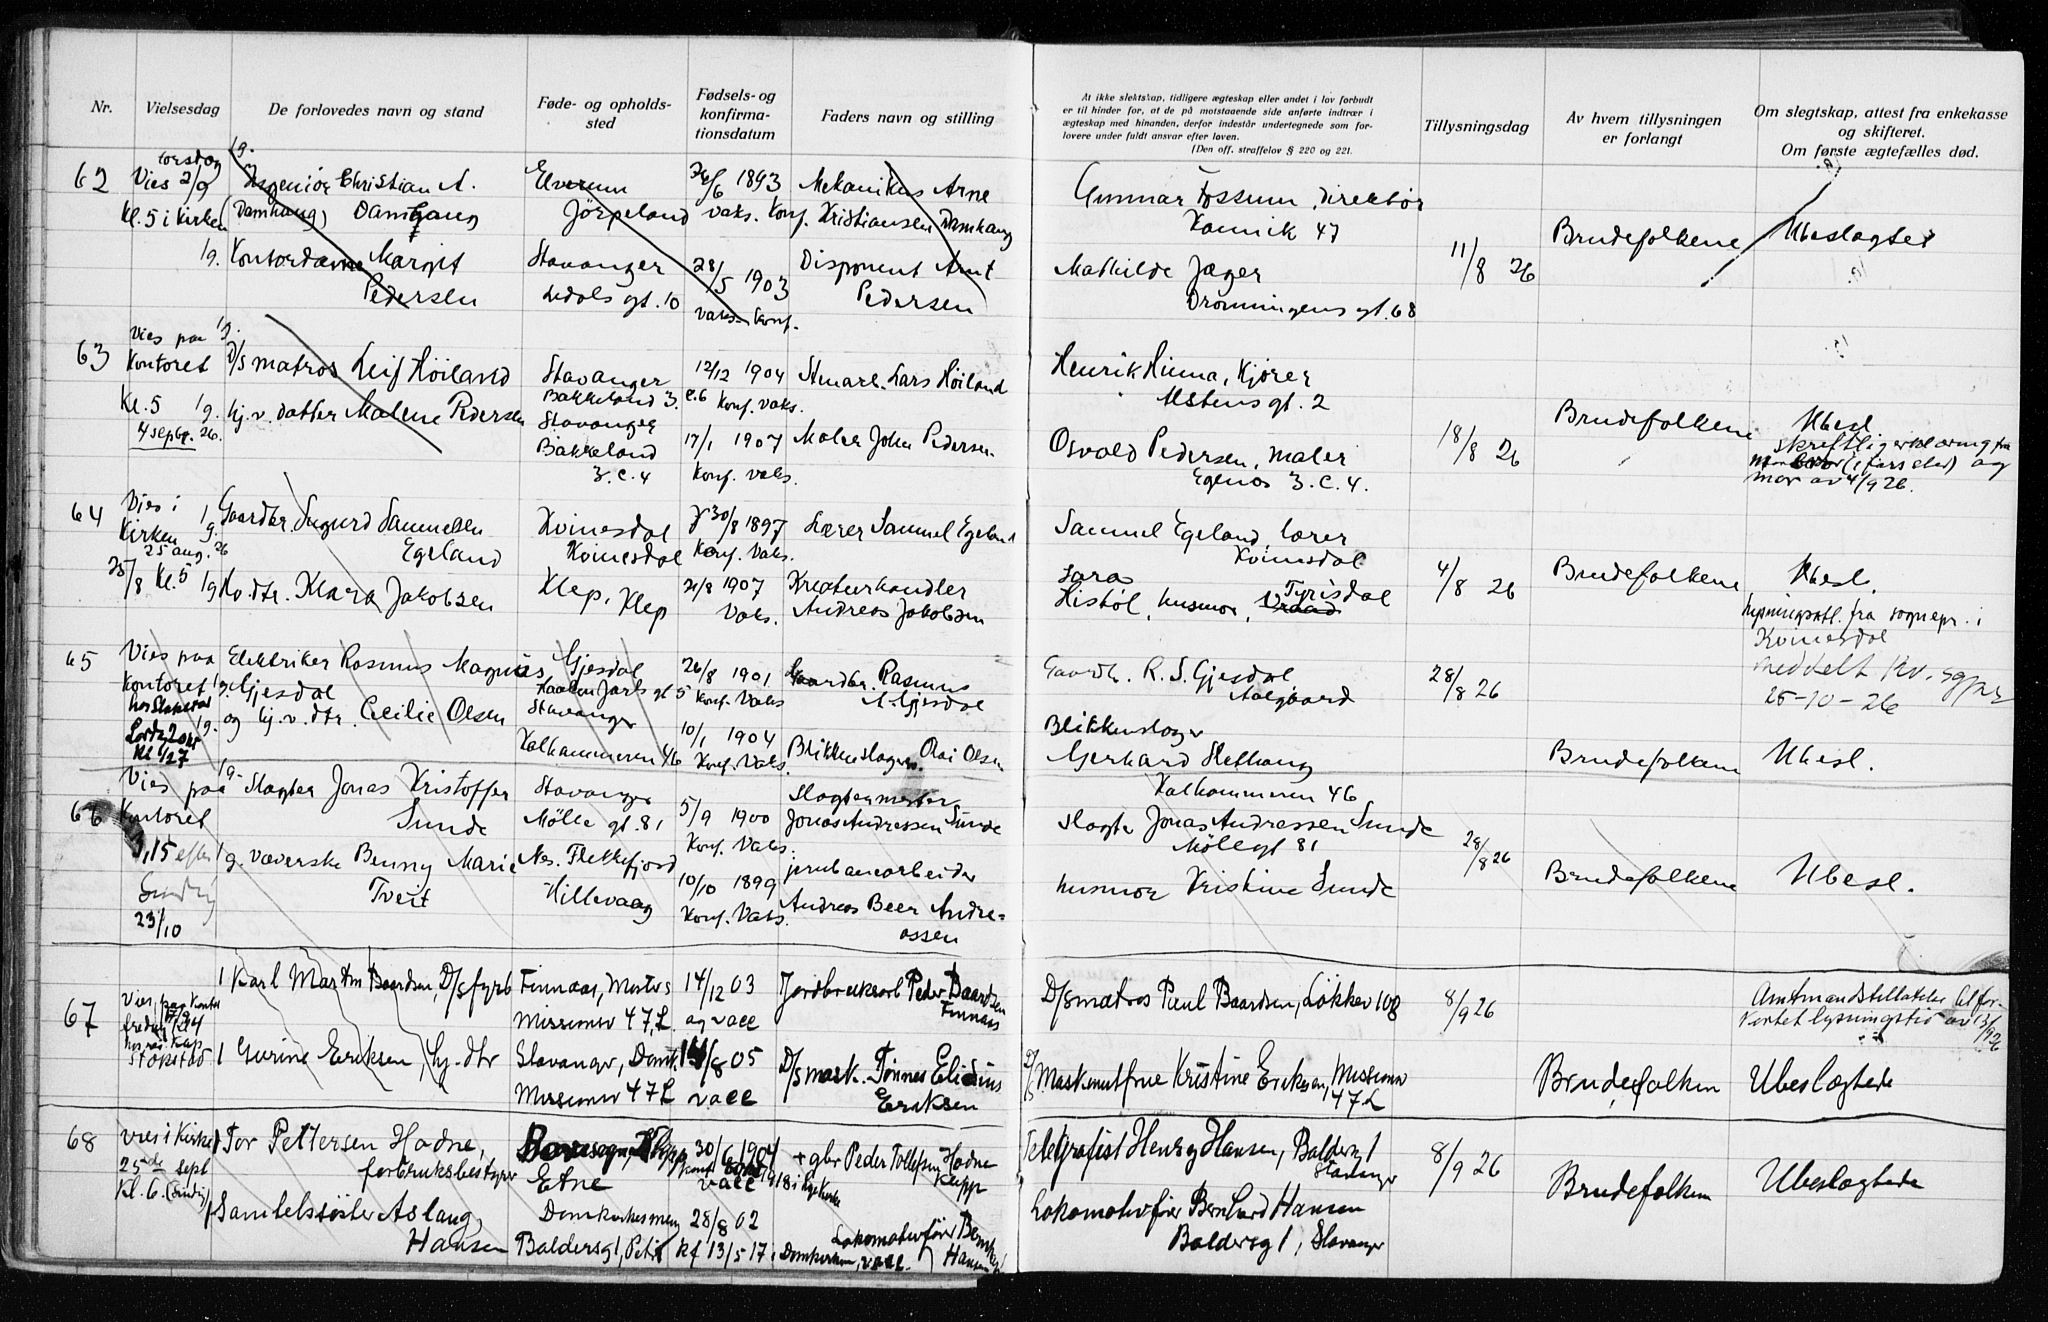 Nr.
Vielsesdag
De forlovedes navn og stand
Føde- og opholds-
sted
Fødsels- og
konfirma-
tionsdatum
Faders navn og stilling
At ikke slektskap, tidligere ægteskap eller andet i lov forbudt
er til hinder for, at de på motstaaende side anførte indtrær i
ægteskap med hinanden, derfor indestår undertegnede som for-
lovere under fuldt ansvar efter loven.
(Den off. straffelov § 220 og 221.
Tillysningsdag
Av hvem tillysningen
er forlangt
Om slegtskap, attest fra enkekasse
og skifteret.
Om første ægtefælles død.
62
torsdag
Vies 2/9
Kl. 5 i Kirken
1g.
Ingeniør Christian A.
(Damhaug) Damhaug
Elverum
Jørpeland
24/6 1893
Vaks. Konf.
Mekanikus Arne
Kristiansen Damhaug
Gunnar Fossum, direktør
Kannik 47
1g. Kontordame Margit
Pedersen
Stavanger
Ledals gt. 10
28/5 1903
Vaks. Konf.
Disponent Arnt
Pedersen
Mathilde Jæger
Dronningens gt. 68
11/8 26
Brudefolkene
Ubeslagtet
63
Vies paa
Kontoret
Kl. 5
4 septbr. 26.
1g.
D/S matros Leif Höiland
Stavanger
Bakkeland 3.
12/12 1904
Konf. Vaks.
Lars Höiland
Henrik Hinna, Kjører
gt. 2
1g. hj. v. datter Malene Pedersen
Stavanger
Bakkeland
3. c. 4
17/1 1907
Konf. Vaks.
Maler John Pedersen
Osvald Pedersen, maler
Egenes 3. c. 4.
18/8 26
Brudefolkene
Ubesl
skriftlig erklæring fra
(i fars sted) og
mor av 4/9 26.
64
Vies i
Kirken
25 aug. 26
25/8 Kl. 5
1g. Gaardbr. Sigurd Samuelsen
Egeland
Kvinesdal
Kvinesdal
30/8 1897
Konf. Vaks.
Lærer Samuel Egeland
Samuel Egeland, lærer
Kvinesdal
1g. Ho. dtr. Klara Jakobsen
Klep, Klep
21/8 1907
Vaks.
Kreaturhandler
Andreas Jakobsen
Sara
Histöl, husmor, Tyrisdal
4/8 26
Brudefolkene
Ubesl.
lysningsatt. fra sognepr. i
Kvinesdal
meddelt Kv. sgpr
25-10-26
65
Vies paa
Kontoret
hos Stokstad
Lørdg 2 okt
Kl 1/2 7
1g.
Elektriker Rasmus Magnus
Gjesdal
Gjesdal
Haakon Jarls gt 5
26/8 1901
Konf. Vaks
Gaardbr. Rasmus
Gjesdal
Gaardb. R. S. Gjesdal
Aalgaard
28/8 26
1g.
og hj. v. dtr. Cecilie Olsen
Stavanger
Kalhammeren 46
10/1 1904
Konf. Vaks.
Blikkenslager Olai Olsen
Blikkenslager
Gerhard Hethaug
Kalhammeren 46
Brudefolkene
Ubesl.
66
Vies paa
Kontoret
23/10
1g. Slagter Jonas Kristoffer
Sunde
Stavanger
Mølle gt. 81
5/9 1900
Konf. Vaks.
Slagtermester
Jonas Andreassen Sunde
Slagter Jonas Andreassen Sunde
Møllegt 81
1g. Væverske Benny Marie
Tveit
Nes. Flekkefjord
Hillevaag
10/10 1899
Konf. Vaks.
jernbanearbeider
Andreas Beer Andre-
assen
husmor Kristine Sunde
28/8 26
Brudefolkene
Ubesl.
67
Vies paa Kontoret
fredag 17/9
Stokstad
1 Karl Martin Baardsen, D/S fyrb
Finnaas, Mosters
Missionsv 47, L.
14/12 03
og vacc
Jordbruksarb Peder Baardsen
Finnaas
D/S matros Paul Baardsen, Løkkev 108
8/9 26
Amtmandstillatelse til for-
kortet lysningstid av 13/9 26
1 Gurine Eriksen, hj. dtr
Stavanger, Domk.
Missionsv 47 L
14/8 05
vacc
D/S mask. Tønnes Elidius
Eriksen
D/S Maskinistfrue Kristine Eriksen, Missionsv
47 L
Brudefolken
Ubeslægtede
68
Vies i Kirken
25de sept
Kl. 6.
1 Tor Pettersen Hodne,
forbruksbestyrer
Klepp
Etne
30/6 1904
vacc
+ gbr Peder Tollefsen Hodne
Klepp
Telegrafist Henry Hansen, Baldersg 1
Stavanger
8/9 26
1 Samtelssøster Aslaug
Hansen
Domkirkesmenig
Baldersg 1, Petri
28/8 02
kf 13/5 17 i Domkirken, vacc.
Lokomotivfører Bernhard
Hansen
Lokomotivfører Bernhard Hansen
Baldersg 1, Stavanger
Brudefolken
Ubeslægtede